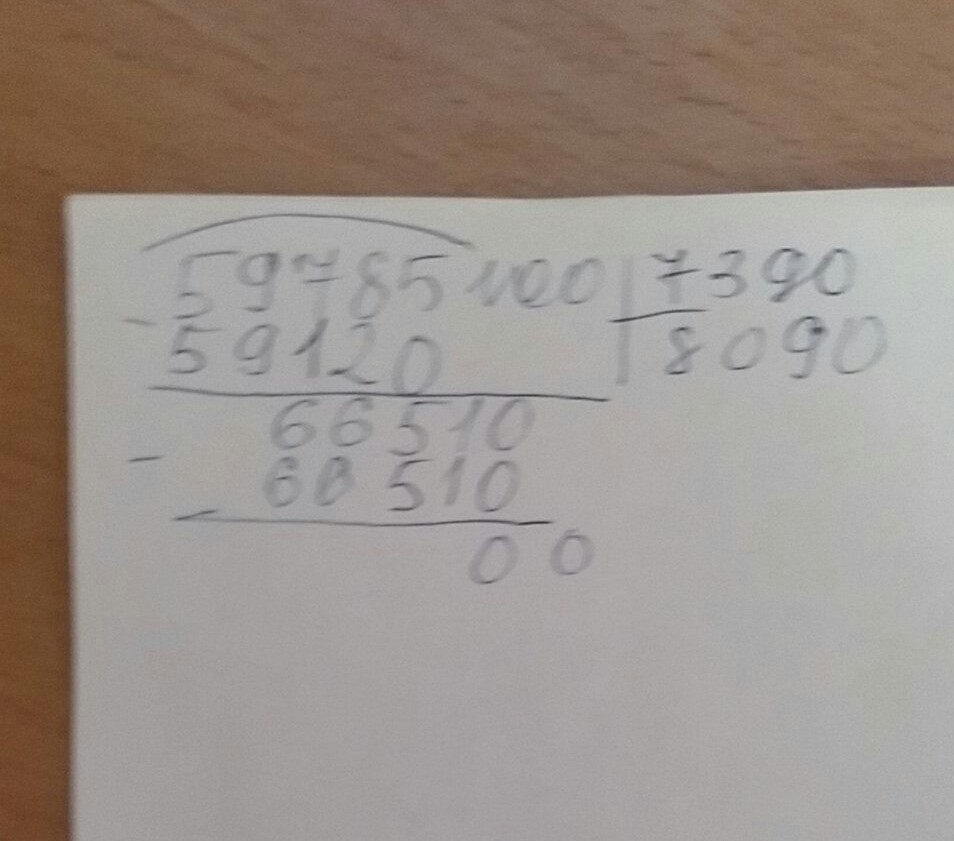 59785100 | 7390
- 59120 | 8090
66510
- 66510
00